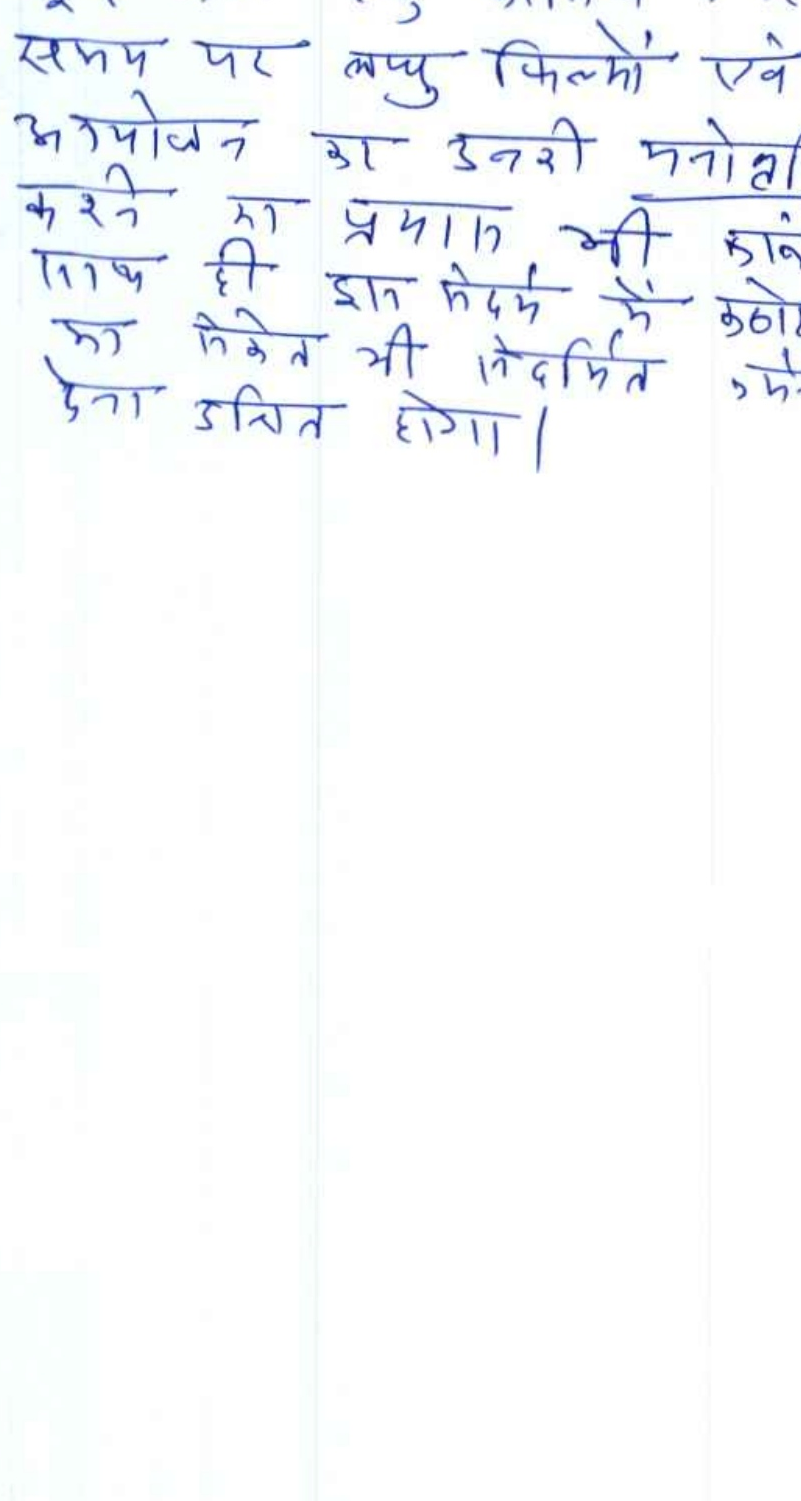 समय पर लघु फिल्मों एवं
आयोजन का उनकी मनोवृ
करने का प्रयास भी
साथ ही इस संदर्भ में कठो
का संकेत भी संदर्भित
देना उचित होगा।